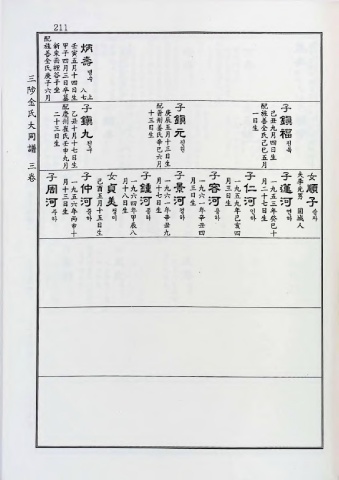 211
三陟金氏大同譜 三卷
炳壽 병수
壬寅五月十四日生
甲子四月三日卒墓
配旌善全氏庚子六月
子鎭福 진복
己丑九月四日生
配旌善全氏己巳五月
一日生
子鎭元 진원
庚辰五月十三日生
配晉州姜氏辛巳六月
十三日生
子鎭九 진구
乙丑十月十七日生
配慶州崔氏壬申九月
二十三日生
女順子 순자
夫李光男 固城人
子蓮河 연하
一九五三年癸巳十
月二十七日生
子仁河 인하
一九五九年己亥四
月三日生
子容河 용하
一九六一年辛丑四
月三日生
子景河 경하
一九六一年辛丑九
月十七日生
子鍾河 종하
一九六四年甲辰八
月十八日生
女貞美 정미
己酉五月十五日生
子仲河 중하
一九五六年丙申十
月十三日生
子周河 주하